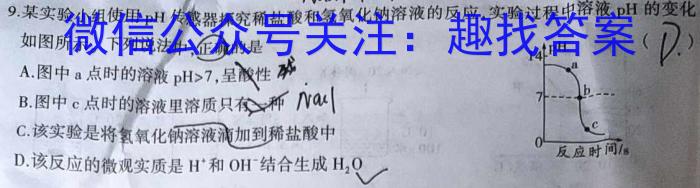 9.某实验小组使用pH传感器探究稀盐酸和氢氧化钠溶液的反应,实验过程中溶液pH的变化
如图所示。下列说法中正确的是 ( D. )
微信公众号关注：趣找答案
A.图中a点时的溶液pH>7,呈酸性
B.图中c点时的溶液里溶质只有一种 NaCl
C.该实验是将氢氧化钠溶液滴加到稀盐酸中
D.该反应的微观实质是H⁺和OH⁻结合生成H₂O
14 pH
a
7 b
c
0 反应时间/s